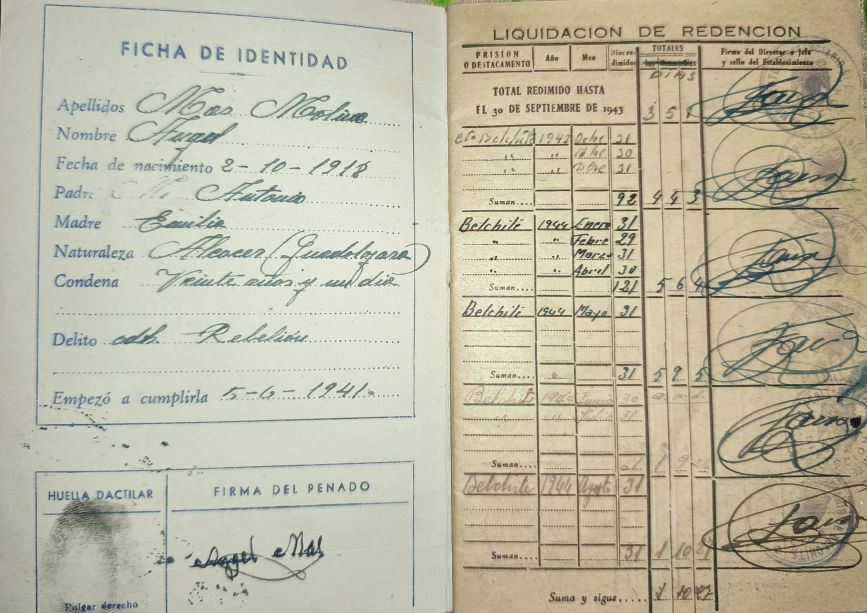 FICHA DE IDENTIDAD
Apellidos Mas Molina
Nombre Angel
Fecha de nacimiento 2-10-1918
Padre Antonio
Madre Emilia
Naturaleza Alcocer (Guadalajara)
Condena Veinte años y un dia
Delito Rebelión
Empezó a cumplirla 5-6-1941.
HUELLA DACTILAR
FIRMA DEL PENADO
Angel Mas
Pulgar derecho
LIQUIDACION DE REDENCION
PRISION O DESTACAMENTO Año Mes Dias redimidos TOTALES Firma del Director o Jefe y sello del Establecimiento
DIAS
TOTAL REDIMIDO HASTA
EL 30 DE SEPTIEMBRE DE 1943 3 5 1
Belchite 1943 Octbe 31
" " 30
" " 31
Suman.... 92 4 4 3
Belchite 1944 Enero 31
" " Febre 29
" " Marzo 31
" " Abril 30
Suman.... 121 5 6 4
Belchite 1944 Mayo 31
Suman.... 31 5 9 5
Belchite Junio 30 a. m. d.
" " Julio 31
Suman.... 61 1 9 26
Belchite 1944 Agoto 31
Suman.... 31 1 10
Suma y sigue...... 1 10 27